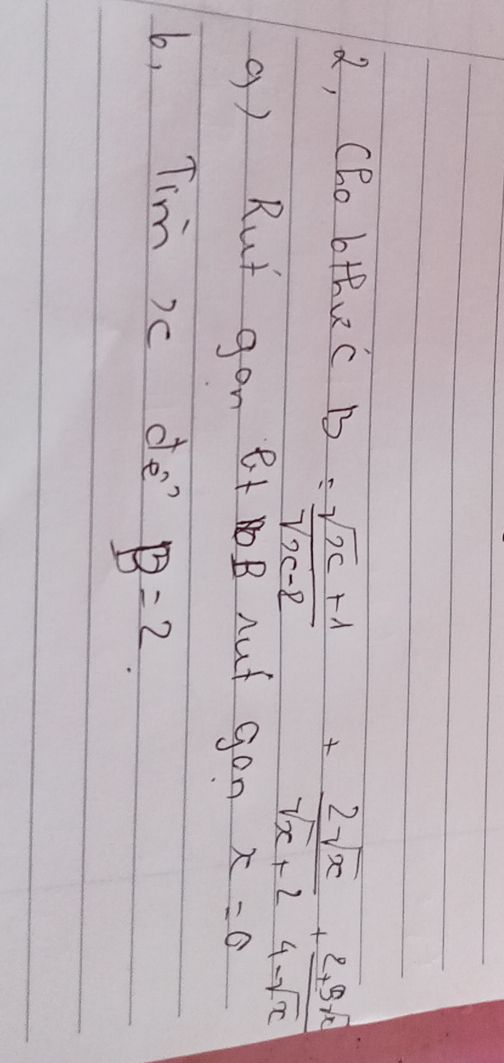 2, Cho bthức B = (√x + 1)/(√x - 2) + (2√x)/(√x + 2) + (2+5√x)/(4-√x)
a) Rút gọn bt B rút gọn x = 0
b, Tìm x để B = 2.